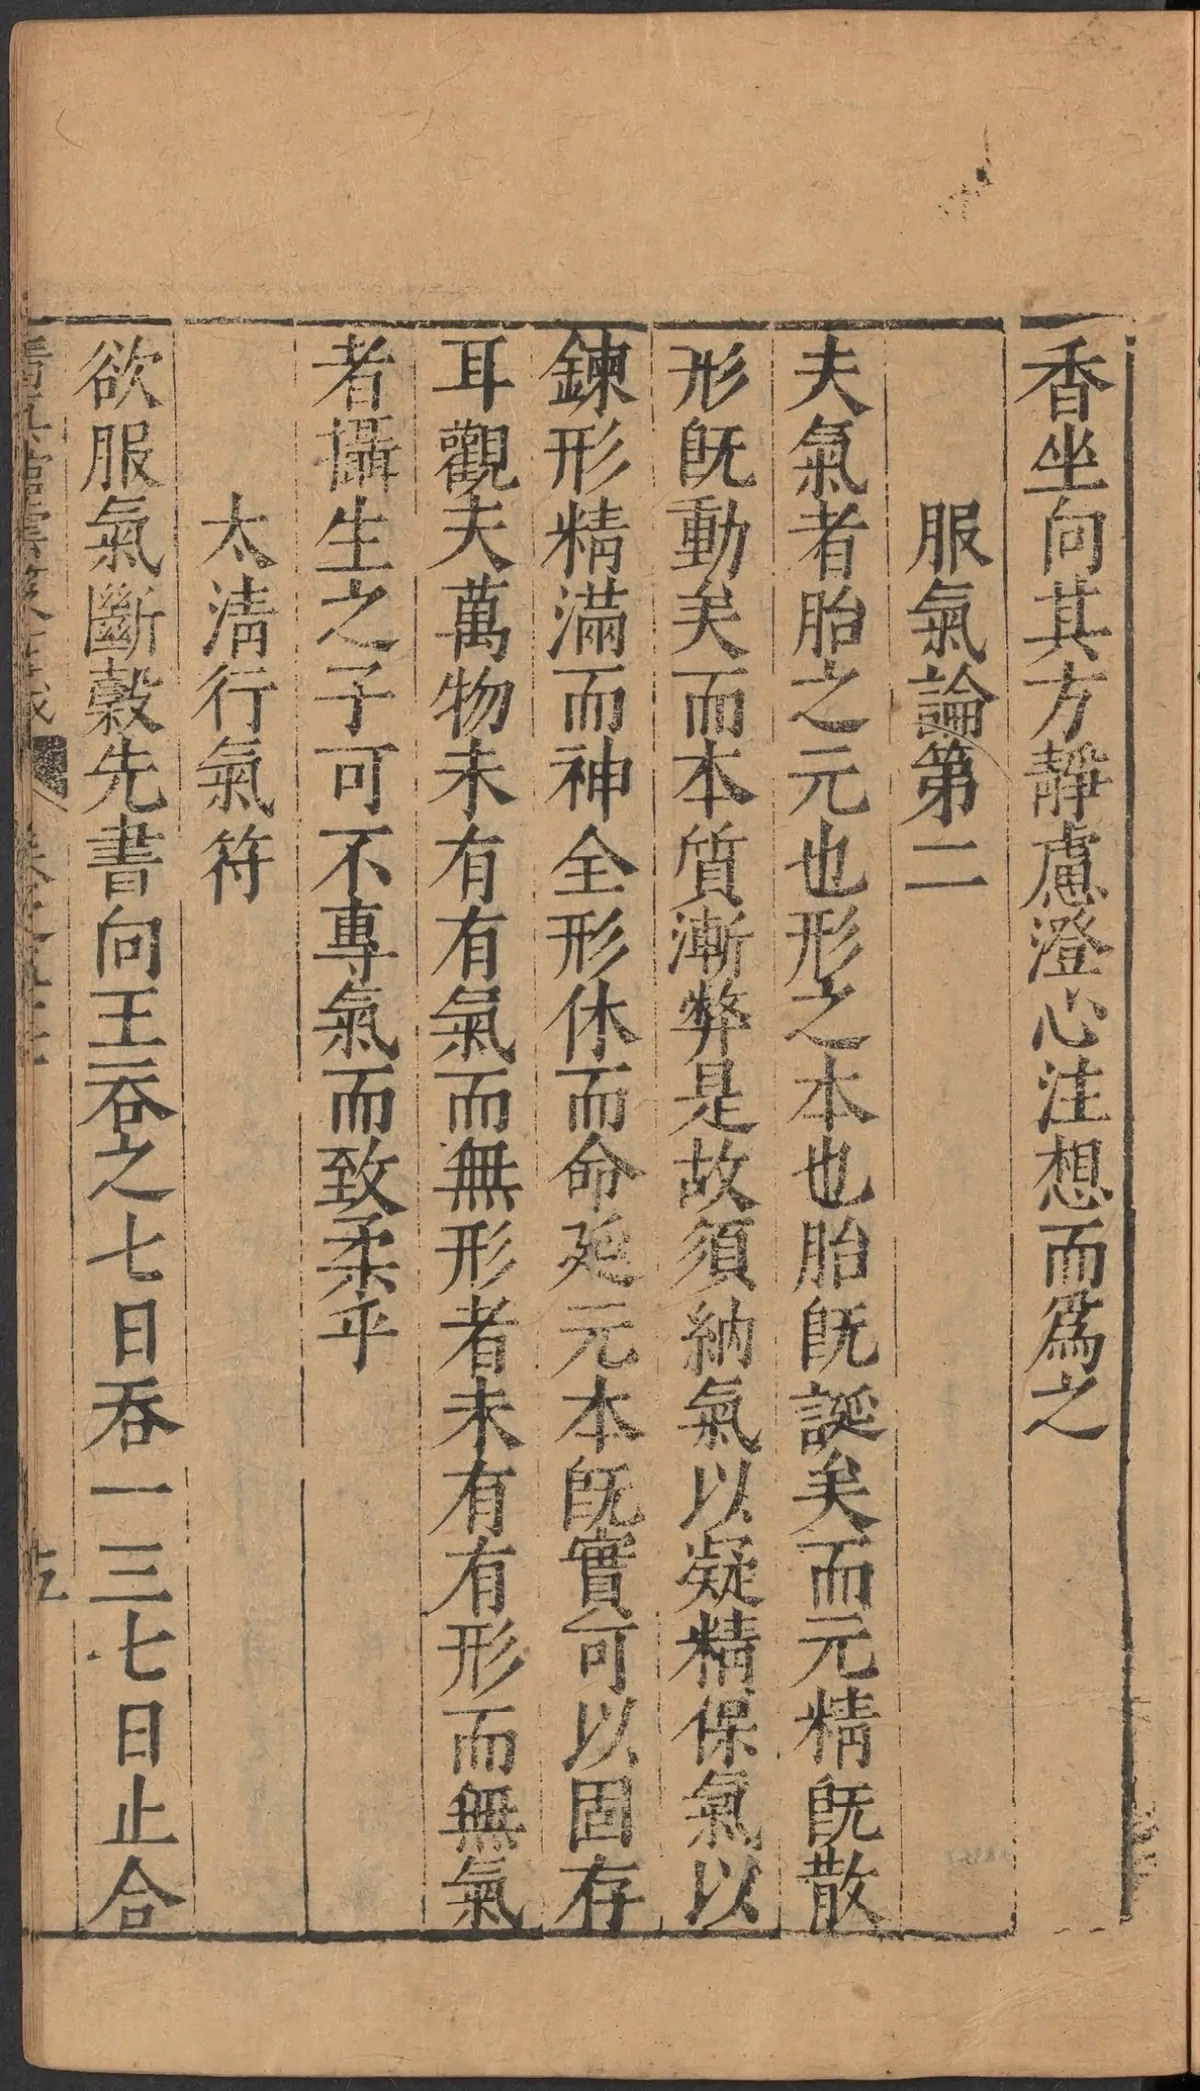 香坐向其方靜慮澄心注想而爲之
服氣論第二
夫氣者胎之元也形之本也胎旣誕矣而元精旣散
形旣動矣而本質漸弊是故須納氣以凝精保氣以
鍊形精滿而神全形休而命延元本旣實可以固存
耳觀夫萬物未有有氣而無形者未有有形而無氣
者攝生之子可不專氣而致柔乎
太清行氣符
欲服氣斷穀先書向王吞之七日吞一三七日止合